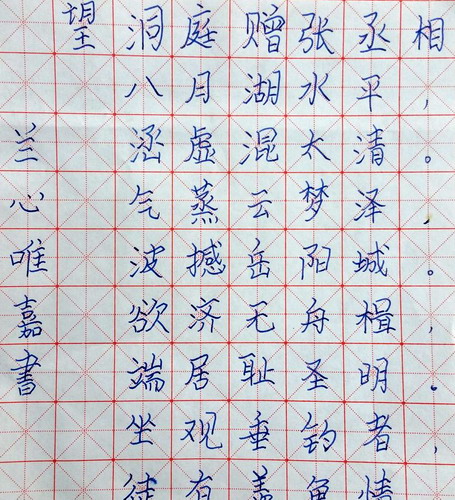 望洞庭赠张丞相
八月湖水平，
涵虚混太清。
气蒸云梦泽，
波撼岳阳城。
欲济无舟楫，
端居耻圣明。
坐观垂钓者，
徒有羡鱼情
兰心唯嘉書